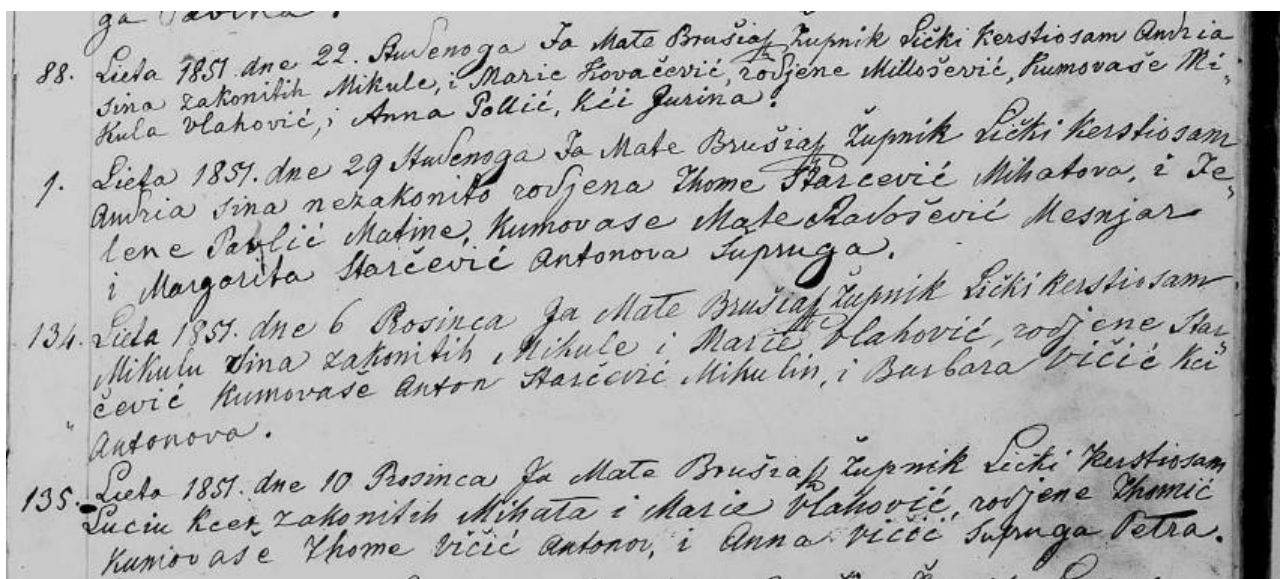 ga Pavina.
88. Lieta 1851. dne 22. Studenoga Ja Mate Brušiaj Župnik Lički Kerstiosam Andria
sina zakonitih Mikule, i Marie Kovačević, rodjene Millošević, Kumovaše Mi„
kula Vlahović, i Anna Pollić, kći Jurina.
1. Lieta 1851. dne 29 Studenoga Ja Mate Brušiaj Župnik Lički Kerstiosam
Andria sina nezakonito rodjena Thome Starcević Mihatova, i Je„
lene Pavlić Matine, Kumovase Mate Radošević Mesnjar
i Margarita Starčević Antonova Supruga.
134. Lieta 1851. dne 6 Prosinca Ja Mate Brušiaj Župnik Lički Kerstiosam
Mikulu sina zakonitih Mikule i Marie Vlahović, rodjene Star„
čević Kumovaše Anton Starčević Mikulin, i Barbara Vičić Kći
Antonova.
135. Lieta 1851. dne 10 Prosinca Ja Mate Brušiaj Župnik Lički Kerstiosam
Luciu Kcer zakonitih Mihata i Marie Vlahović, rodjene Thomić
Kumovaše Thome Vičić Antonov, i Anna Vičić Supruga Petra.